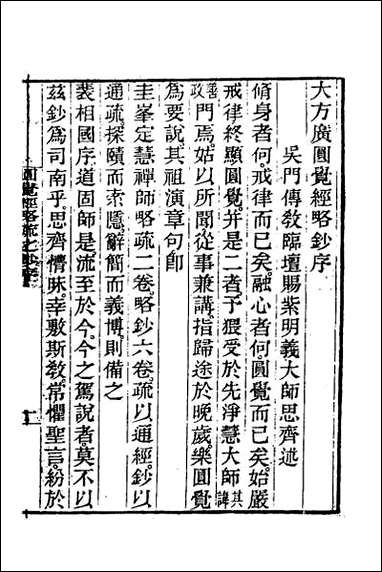 大方廣圓覺經略鈔序
吳門傳敎臨壇賜紫明義大師思齊述
脩身者何。戒律而已矣。融心者何。圓覺而已矣。始嚴
戒律。終顯圓覺。幷是二者。予猥受於先淨慧大師其諱
善政門焉。姑以所聞從事兼講。指歸途於晚歲。樂圓覺
爲要說。其祖演章句卽
圭峯定慧禪師略疏二卷略鈔六卷。疏以通經。鈔以
通疏。探賾而索隱。辭簡而義博。則備之
裴相國序道固師是。流至於今。今之駕說者。莫不以
茲鈔爲司南乎。思齊情昧。幸敷斯敎。常懼聖言。紛於
圓覺經略疏之鈔序
一